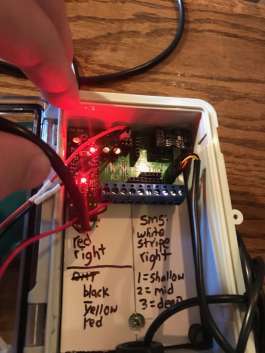 red
right
DHT
black
yellow
red
SMS:
white
stripe
right
1 = shallow
2 = mid
3 = deep